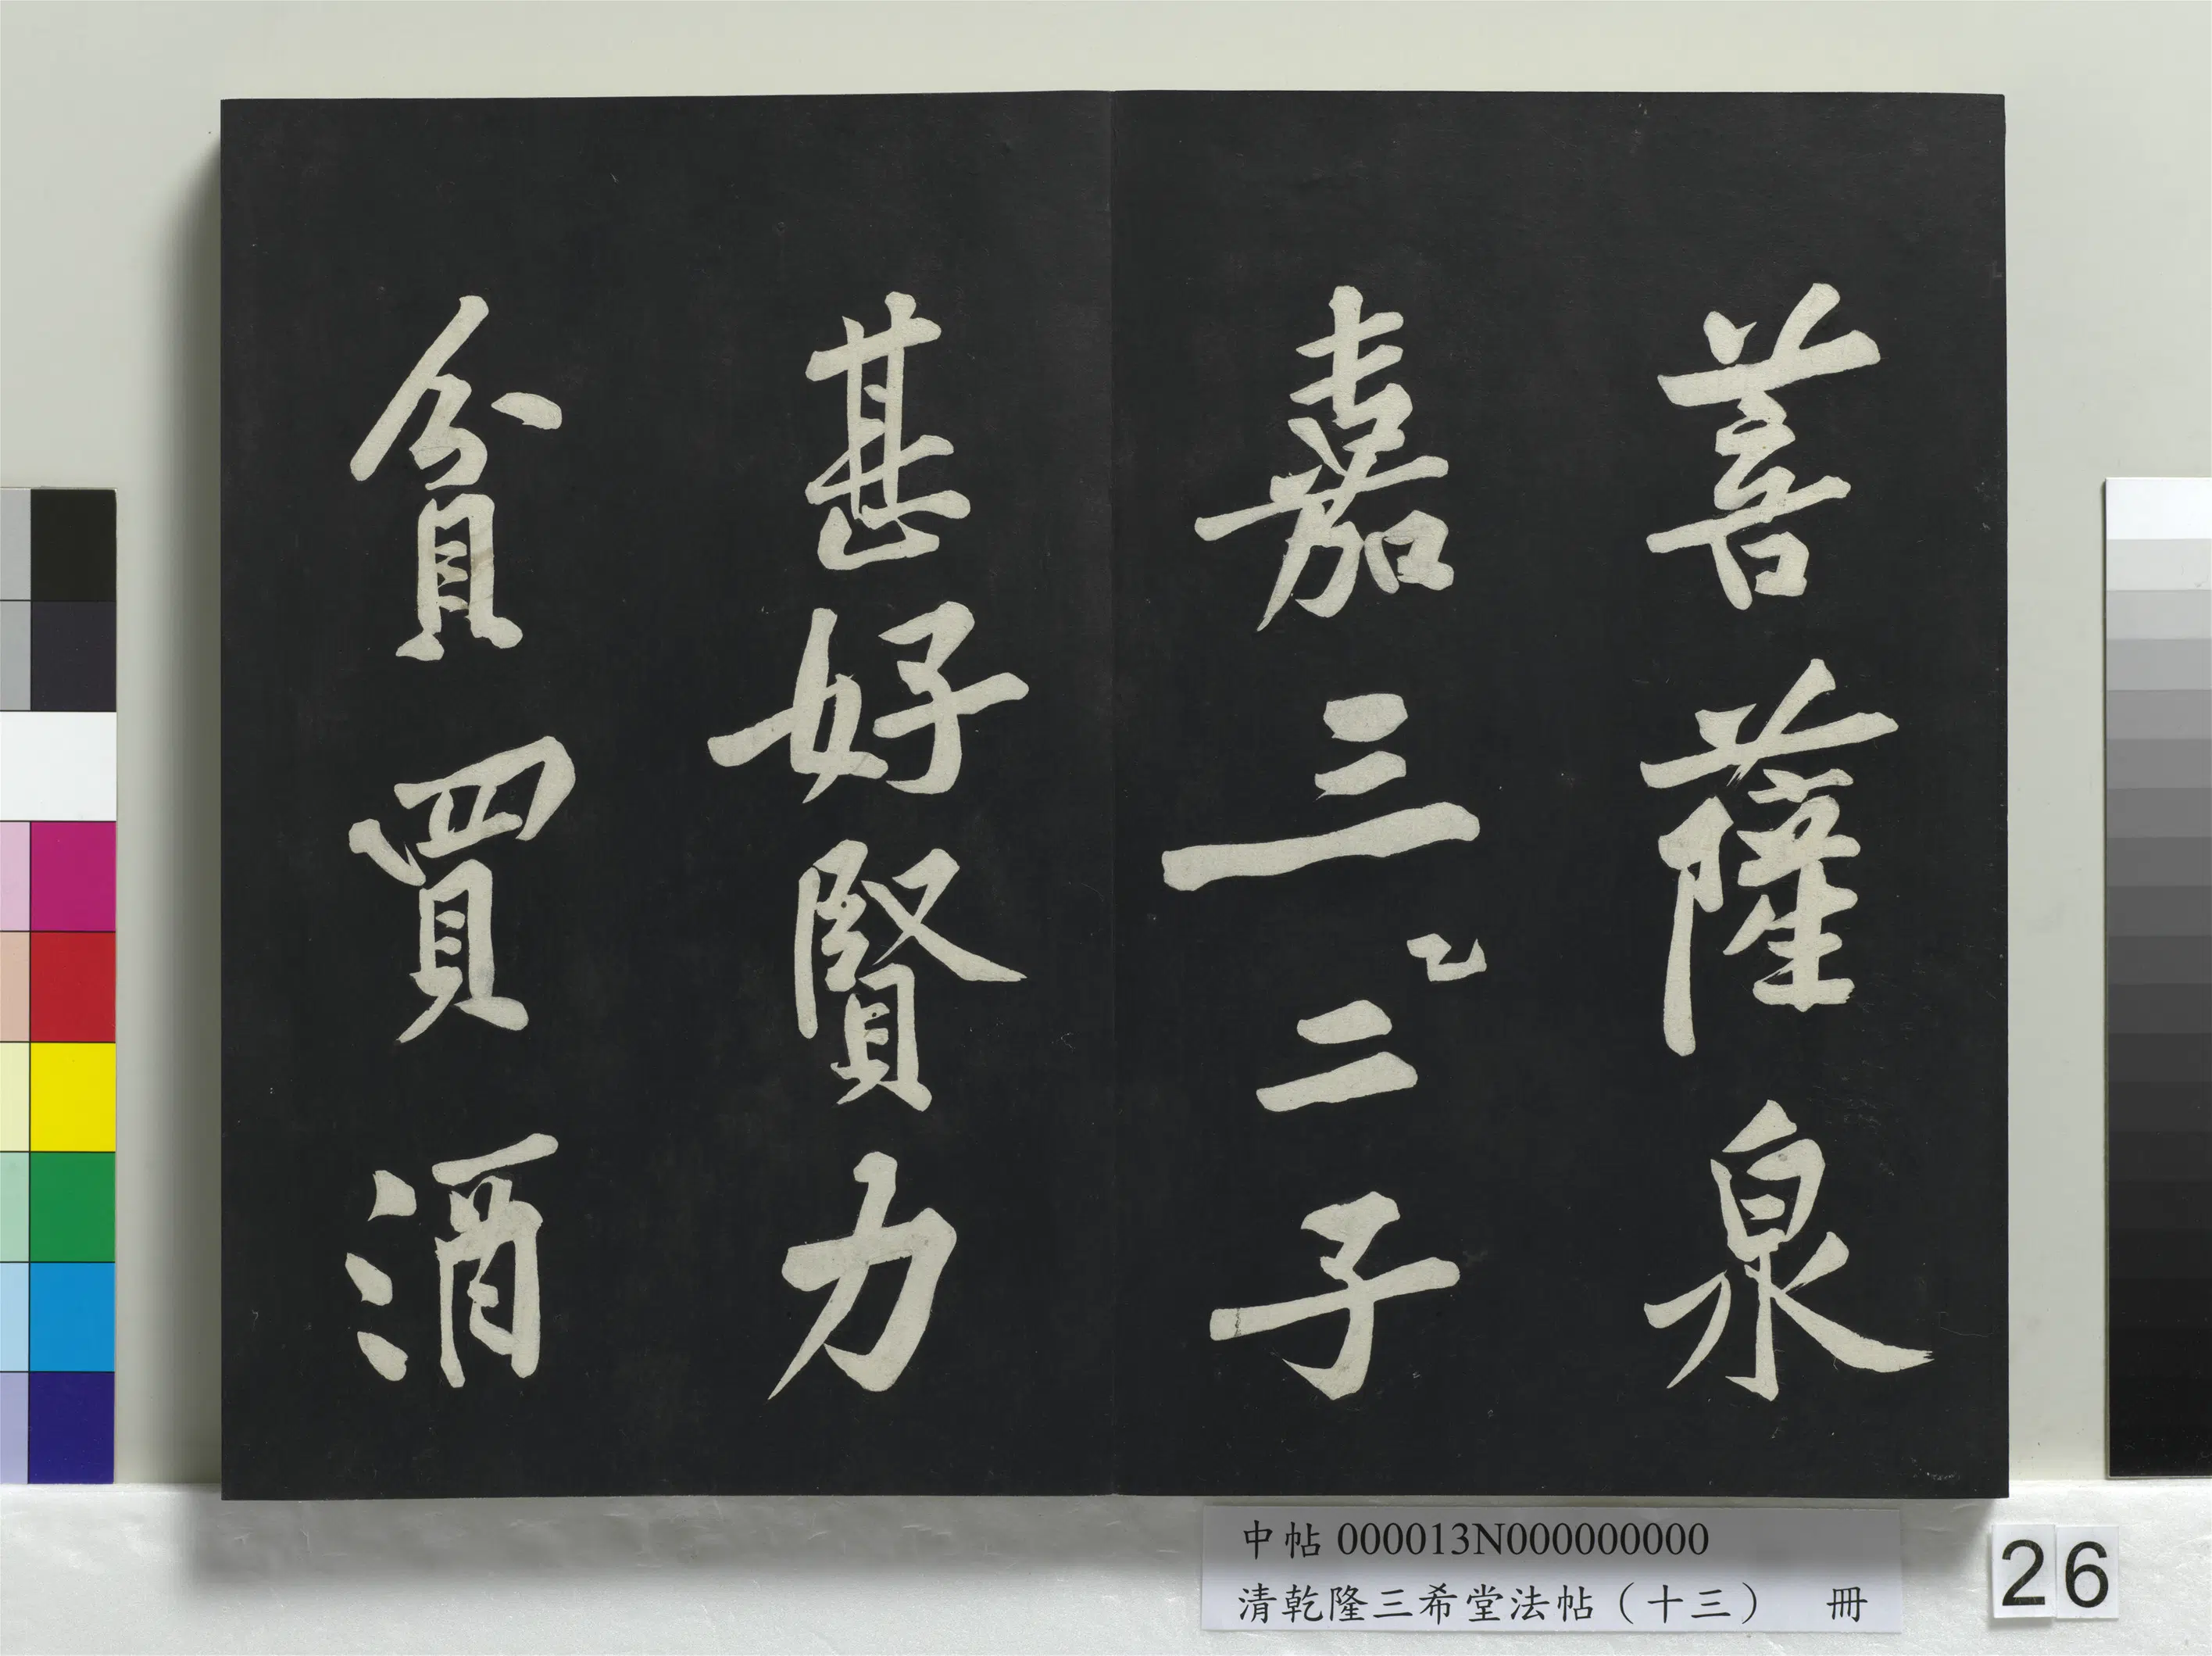 菩薩泉
嘉三二子
甚好賢力
貧買酒
中帖 000013N000000000
清乾隆三希堂法帖（十三） 冊
26